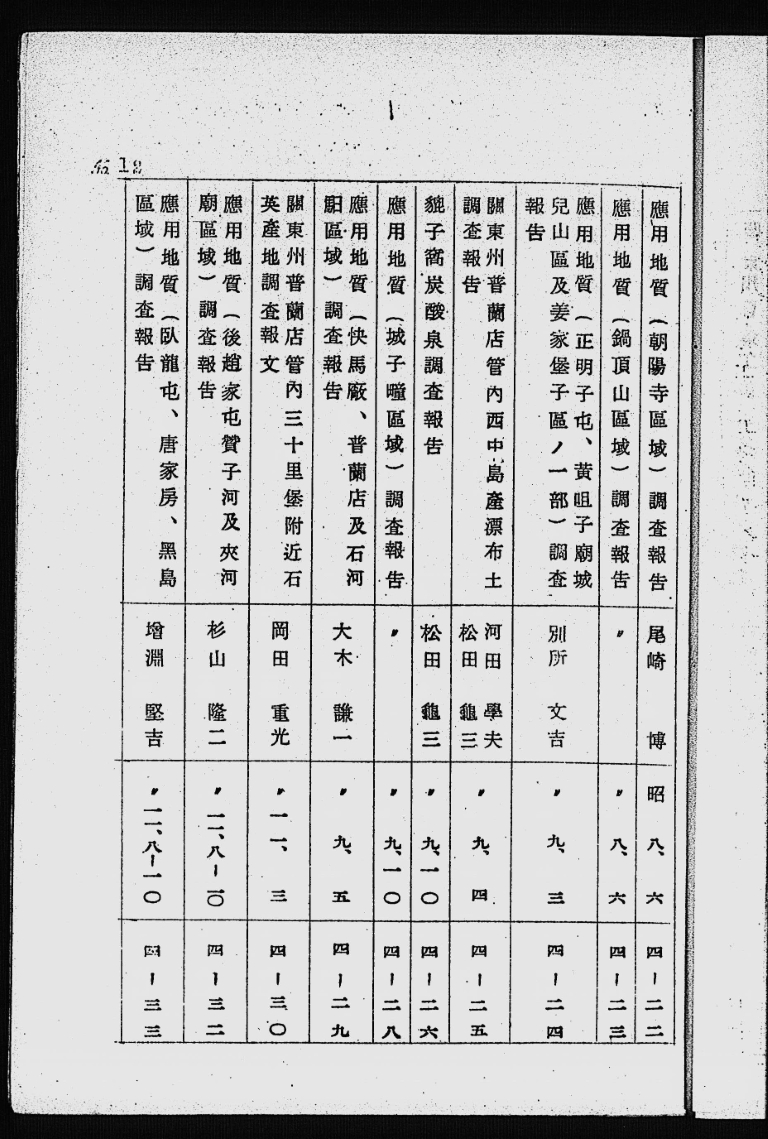 12
應用地質(朝陽寺區域)調査報告
尾崎 博
昭 八、六
四ー二二
應用地質(鍋頂山區域)調査報告
〃
〃 八、六
四ー二三
應用地質(正明子屯、黃咀子廟城
兒山區及姜家堡子區ノ一部)調査
報告
別所 文吉
〃 九、三
四ー二四
關東州普蘭店管內西中島產漂布土
調査報告
河田 學夫
松田 龜三
〃 九、四
四ー二五
貔子窩炭酸泉調査報告
松田 龜三
〃 九、一〇
四ー二六
應用地質(城子疃區域)調査報告
〃
〃 九、一〇
四ー二八
應用地質(快馬廠、普蘭店及石河
區域)調査報告
大木 謙一
〃 九、五
四ー二九
關東州普蘭店管內三十里堡附近石
英產地調査報文
岡田 重光
〃 一一、三
四ー三〇
應用地質(後趙家屯贊子河及夾河
廟區域)調査報告
杉山 隆二
〃 一一、八ー一〇
四ー三二
應用地質(臥龍屯、唐家房、黑島
區域)調査報告
增淵 堅吉
〃 一一、八ー一〇
四ー三三